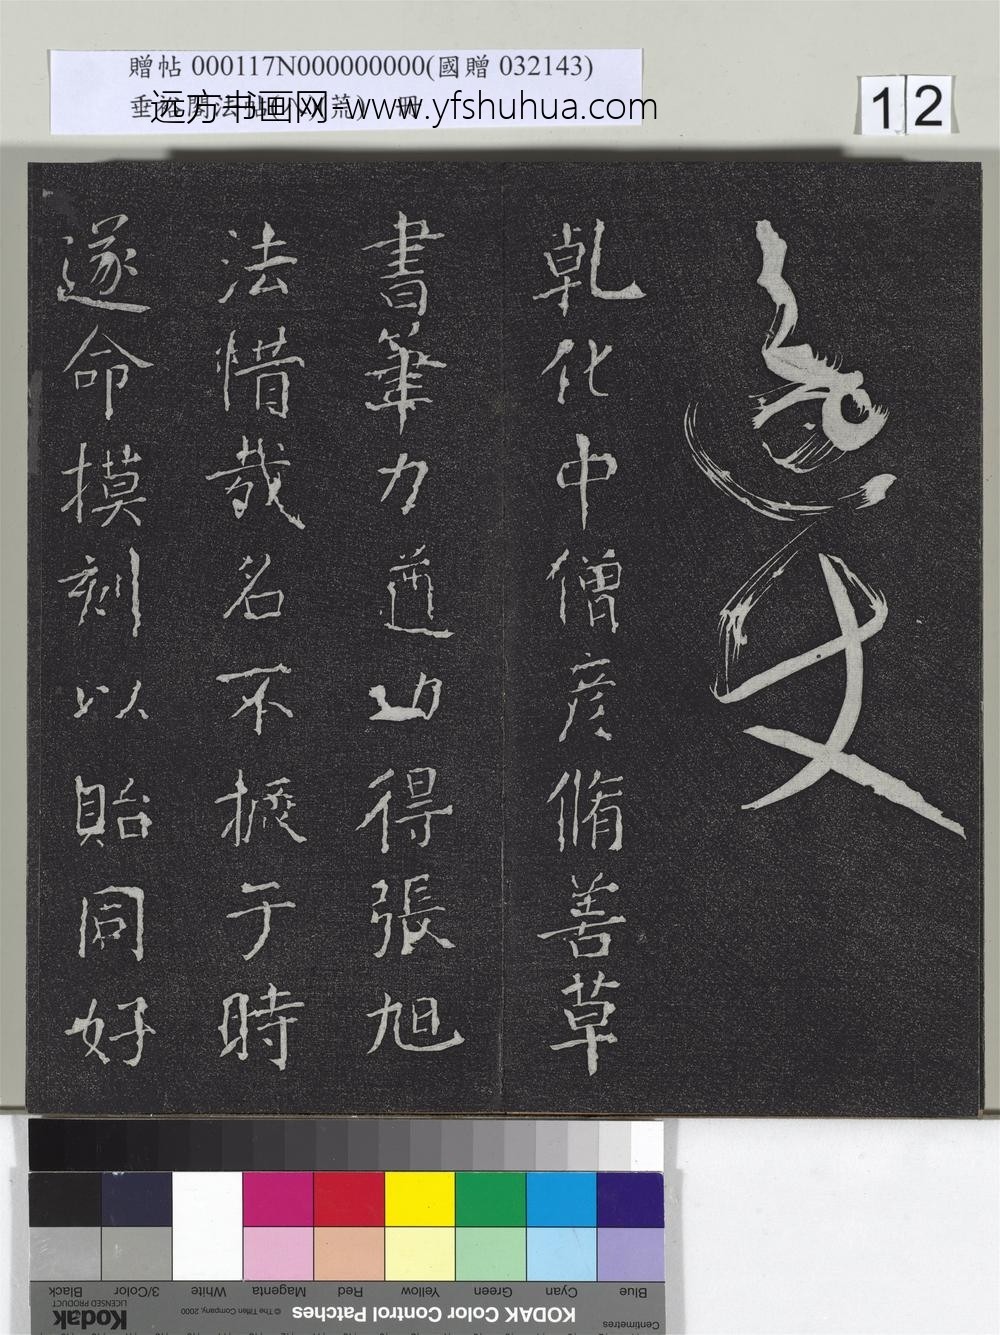 贈帖 000117N000000000(國贈 032143)
远方书画网-www.yfshuhua.com
12
乾化中僧彦脩善草
書筆力遒功得張旭
法惜哉名不振于時
遂命摸刻以貽同好
Blue Cyan Green Yellow Red Magenta White 3/Color Black
Centimetres KODAK Color Control Patches © The Tiffen Company, 2000 Kodak LICENSED PRODUCT